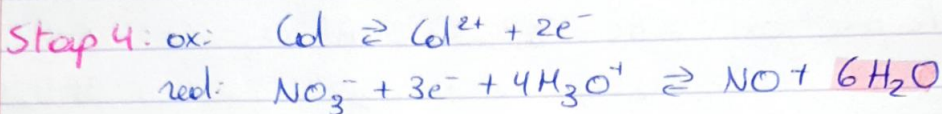 Stap 4: ox: Cd ⇄ Cd²⁺ + 2e⁻
red: NO₃⁻ + 3e⁻ + 4H₃O⁺ ⇄ NO + 6H₂O